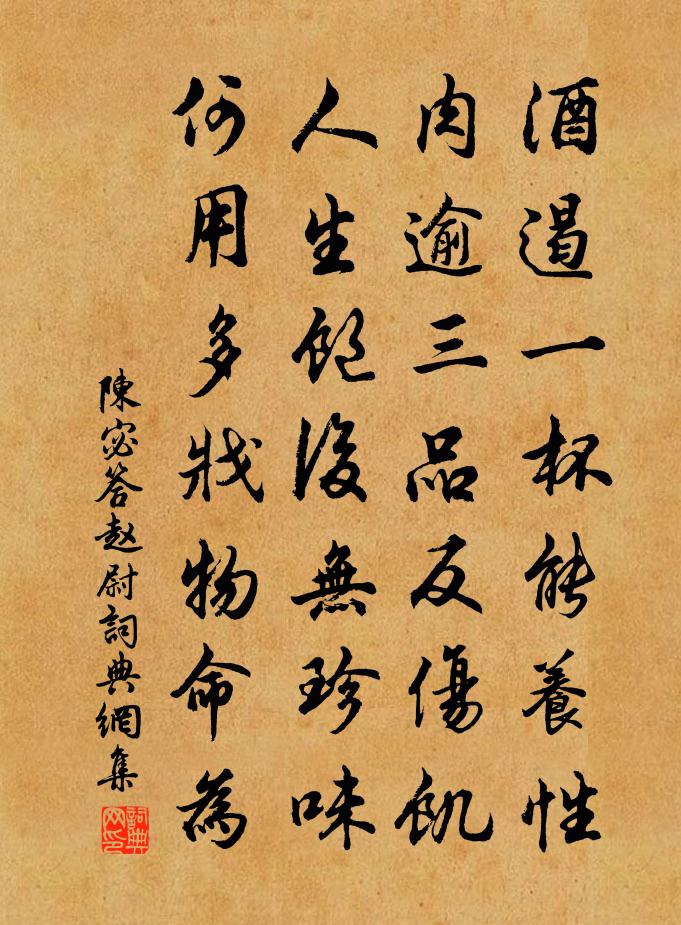 酒遏一杯能養性
肉逾三品反傷飢
人生飽後無珍味
何用多戕物命為
陳宓答趙尉詞典網集
詞典网印